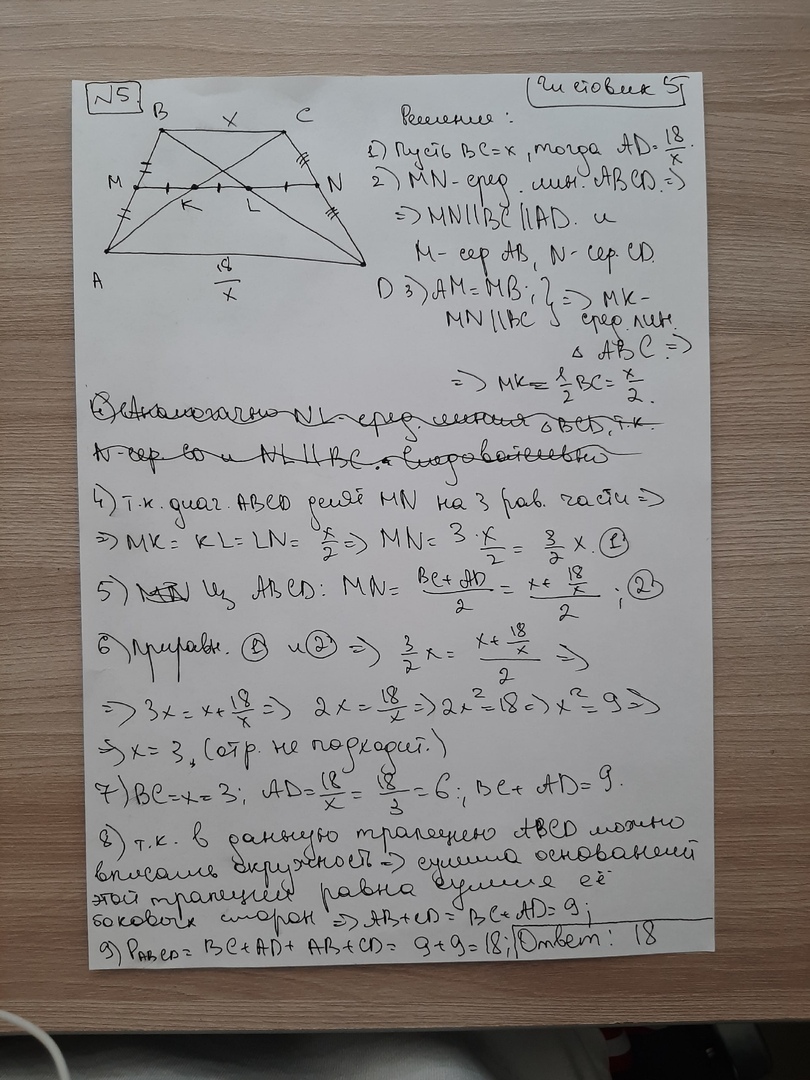 N5.
Чистовик 5
B x C
M K L N
A 18/x D
Решение:
1) Пусть BC=x, тогда AD=18/x.
2) MN-сред. лин. ABCD.=>
=> MN||BC||AD. и
M-сер AB, N-сер. CD.
3) AM=MB; } => MK-
MN||BC сред. лин.
△ ABC =>
=> MK=1/2 BC=x/2.
4) Аналогично NL-сред. линия △BCD, т.к.
N-сер. CD и NL||BC. Следовательно
4) т.к. диаг. ABCD делят MN на 3 рав. части =>
=> MK= KL= LN= x/2 => MN= 3·x/2 = 3/2 x. ①
5) MN Из ABCD: MN= (BC+AD)/2 = (x+18/x)/2 ; ②
6) Приравн. ① и ② => 3/2 x= (x+18/x)/2 =>
=> 3x=x+18/x => 2x=18/x => 2x²=18 => x²=9 =>
=> x=3, (отр. не подходит.)
7) BC=x=3; AD=18/x=18/3=6; BC+AD=9.
8) т.к. в данную трапецию ABCD можно
вписать окружность => сумма оснований
этой трапеции равна сумме её
боковых сторон => AB+CD= BC+AD=9;
9) P_ABCD= BC+AD+ AB+CD= 9+9=18; Ответ: 18